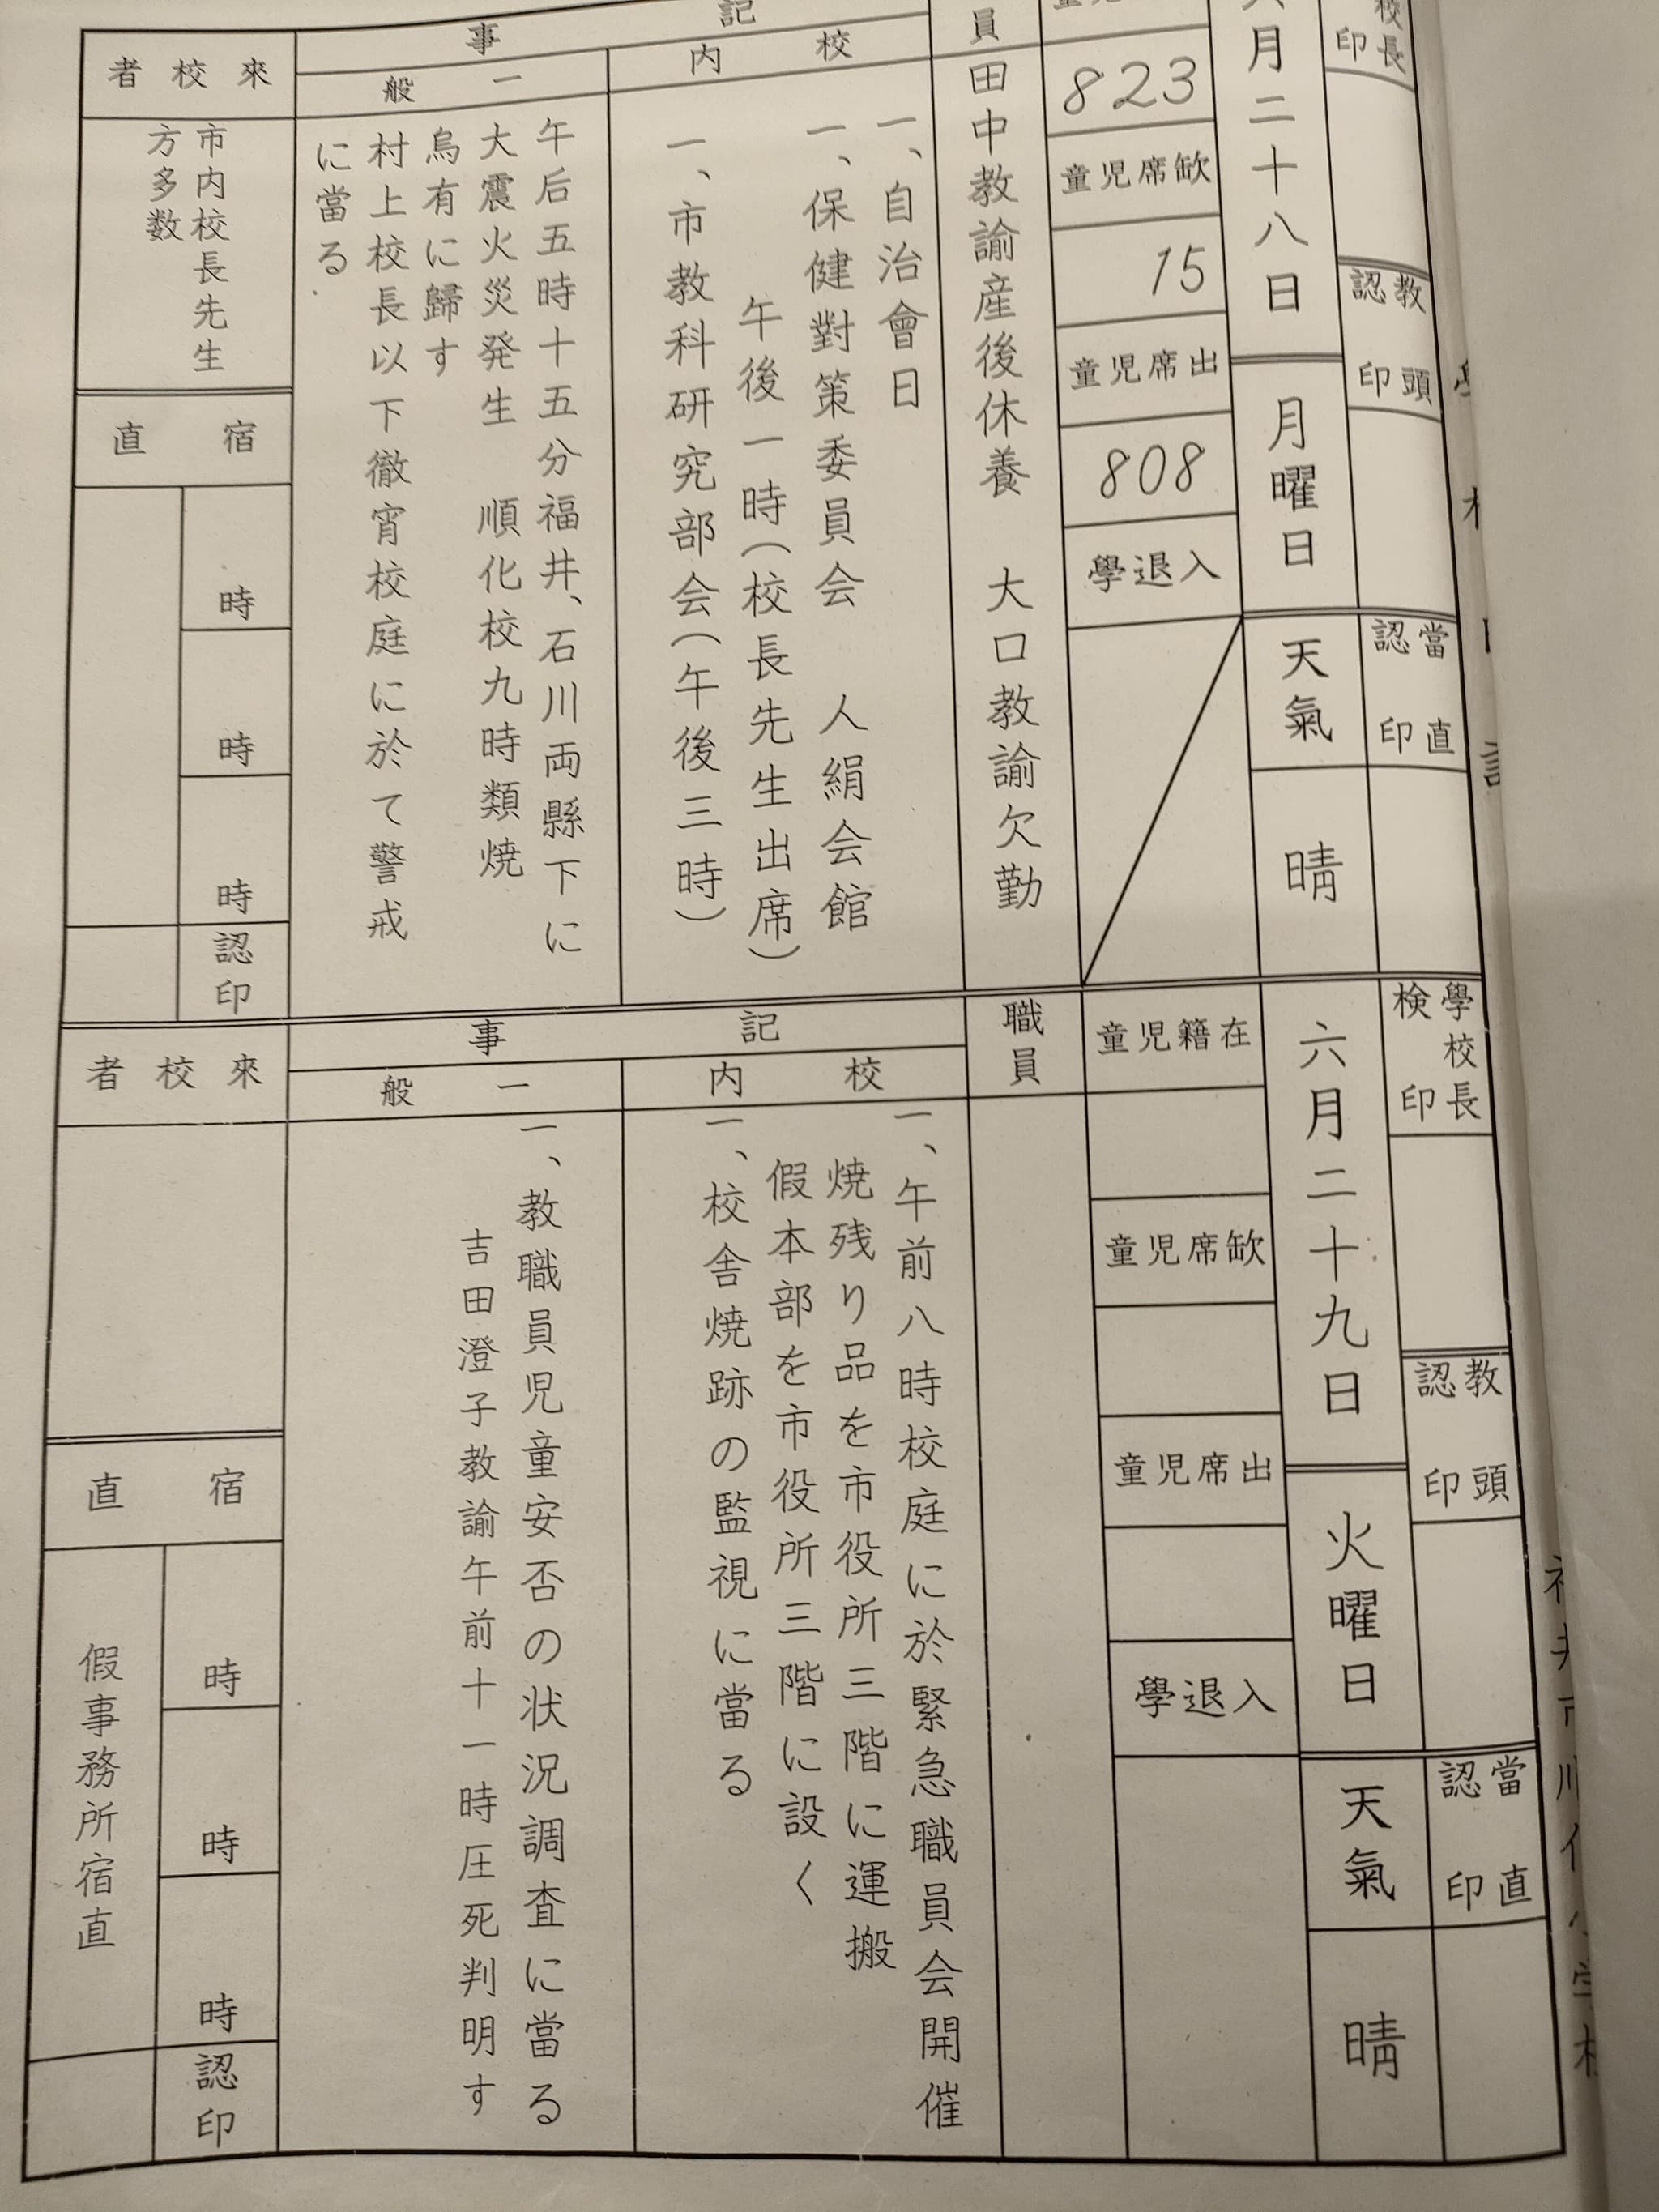 校長
印
教頭
認印
當直
認印
月二十八日
月曜日
天氣
晴
823
欠席児童
15
出席児童
808
入退學
員
田中教諭産後休養 大口教諭欠勤
記事
校内
一、自治會日
一、保健對策委員会 人絹会館
午後一時(校長先生出席)
一、市教科研究部会(午後三時)
一般
午后五時十五分福井、石川両縣下に
大震火災発生 順化校九時類焼
烏有に歸す
村上校長以下徹宵校庭に於て警戒
に當る
來校者
市内校長先生
方多数
宿直
時
時
時
認印
學校長
検印
教頭
認印
當直
認印
六月二十九日
火曜日
天氣
晴
在籍児童
缼席児童
出席児童
入退學
職員
記事
校内
一、午前八時校庭に於緊急職員会開催
焼残り品を市役所三階に運搬
假本部を市役所三階に設く
一、校舎焼跡の監視に當る
一般
一、教職員児童安否の状況調査に當る
吉田澄子教諭午前十一時圧死判明す
來校者
宿直
時
時
時
假事務所宿直
認印